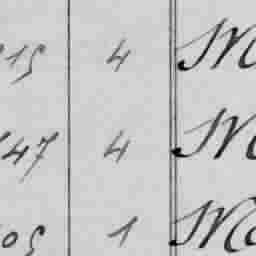 15 4 M
47 4 M
05 1 Ma